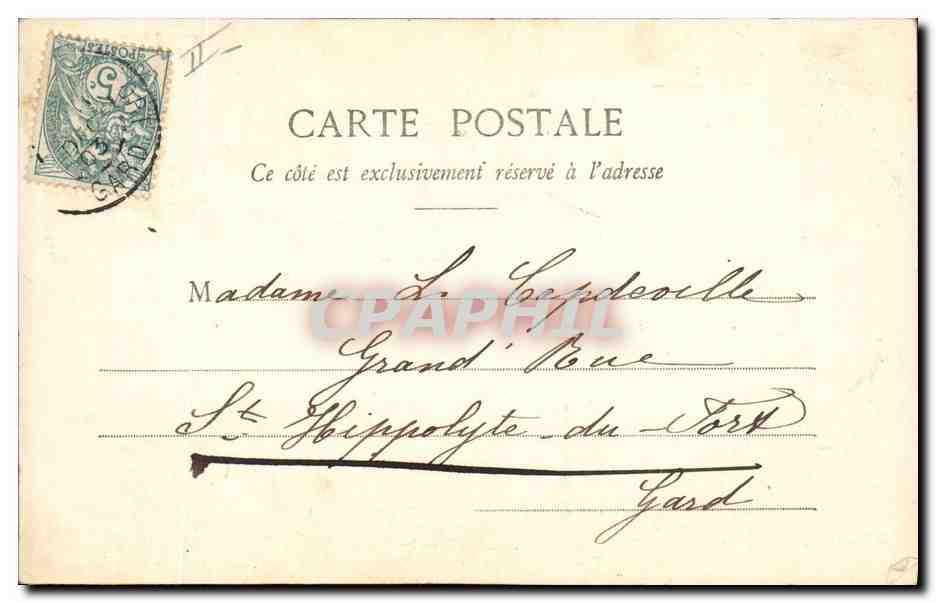 II
POSTES
5
GARD
CARTE POSTALE
Ce côté est exclusivement réservé à l'adresse
Madame L. Capdeville
CPAPHIL
Grand' Rue
St Hippolyte-du-Fort
Gard